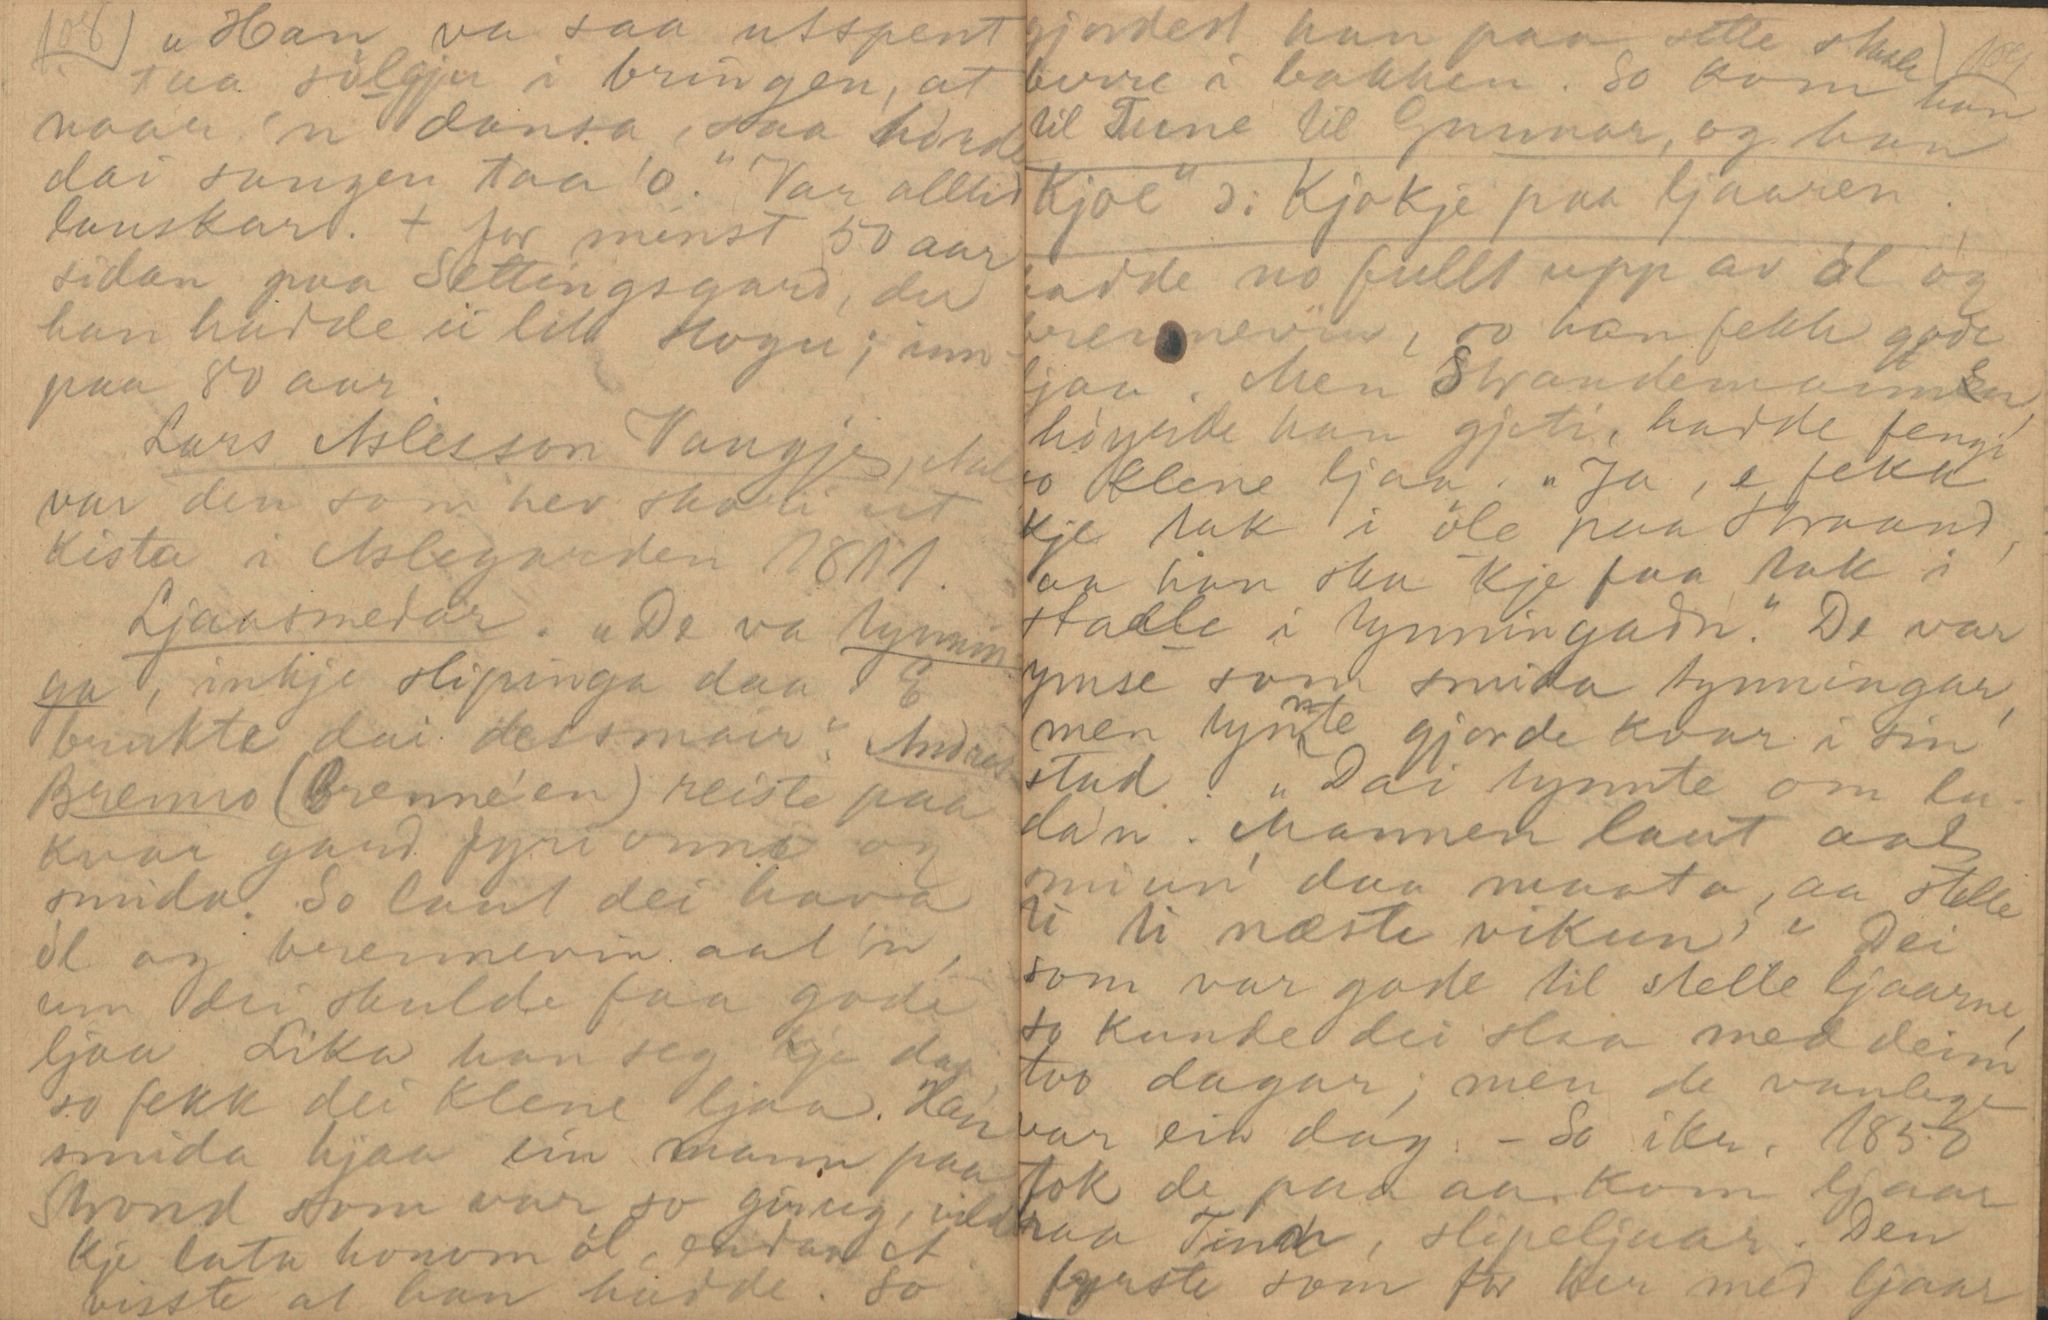 108)
„Han va saa utspent
taa sölgju i bringen, at
naar 'n dansa, saa hörde
dai songen taa 'o." Var alltid
lauskar. + for minst 50 aar
sidan paa Settingsgard, der
han hadde ei liti stogu; inn-
paa 80 aar.
Lars Aslesson Vangje, Aal
var den som hev skori ut
kista i Aslegarden 1811.
Ljaasmedar. „De va tynnin-
ga, inkje slipinga daa E
brukte dai dessmair". Andres
Brenno (Brenne'en) reiste paa
kvar gard fyri onne og
smida. So laut dei hava
öl og brennevin aat 'n,
um dei skulde faa gode
ljaa. Lika han seg kje der
so fekk dei klene ljaa. Han
smida hjaa ein mann paa
Strond som var so girug, vilde
kje lata honom öl, endaa A.
visste at han hadde. So
109
gjordest han paa sette staale
berre i bakken. So kom han
til Tune til Gunnar, og han
Kjoe" ɔ: Kjøkje paa ljaaren.
hadde no fullt upp av öl og
brennevin, so han fekk gode
ljaa. Men Strandemannen,
höyrde han gjeti, hadde fengi
so klene ljaa. „Ja, e fekk
kje tak i öle paa Straand,
aa han ska kje faa tak i
staale i tynningadn." De var
ymse som smida tynningar,
men tynnte gjorde kvar i sin
stad. „Dai tynnte om lu-
da'n. Mannen laut aat
smiun' daa maata, aa stelle
ti ti næste vikun'" Dei
som var gode til stelle ljaarne,
so kunde dei slaa med deim
two dagar; men de vanlege
var ein dag. – So ikr. 1850
tok de paa aa kom ljaar
fraa Tinn, slipeljaar. Den
fyrste som for her med ljaar